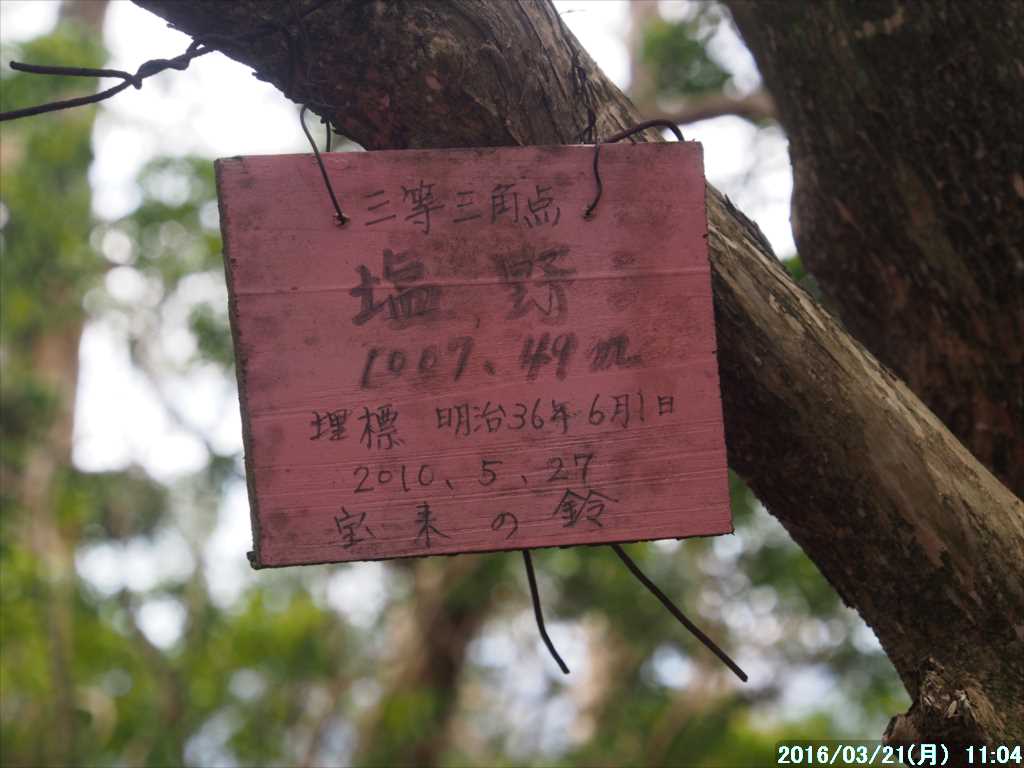 三等三角点
塩野
1007、49m
埋標 明治36年6月1日
2010、5、27
宝来の鈴
2016/03/21(月) 11:04